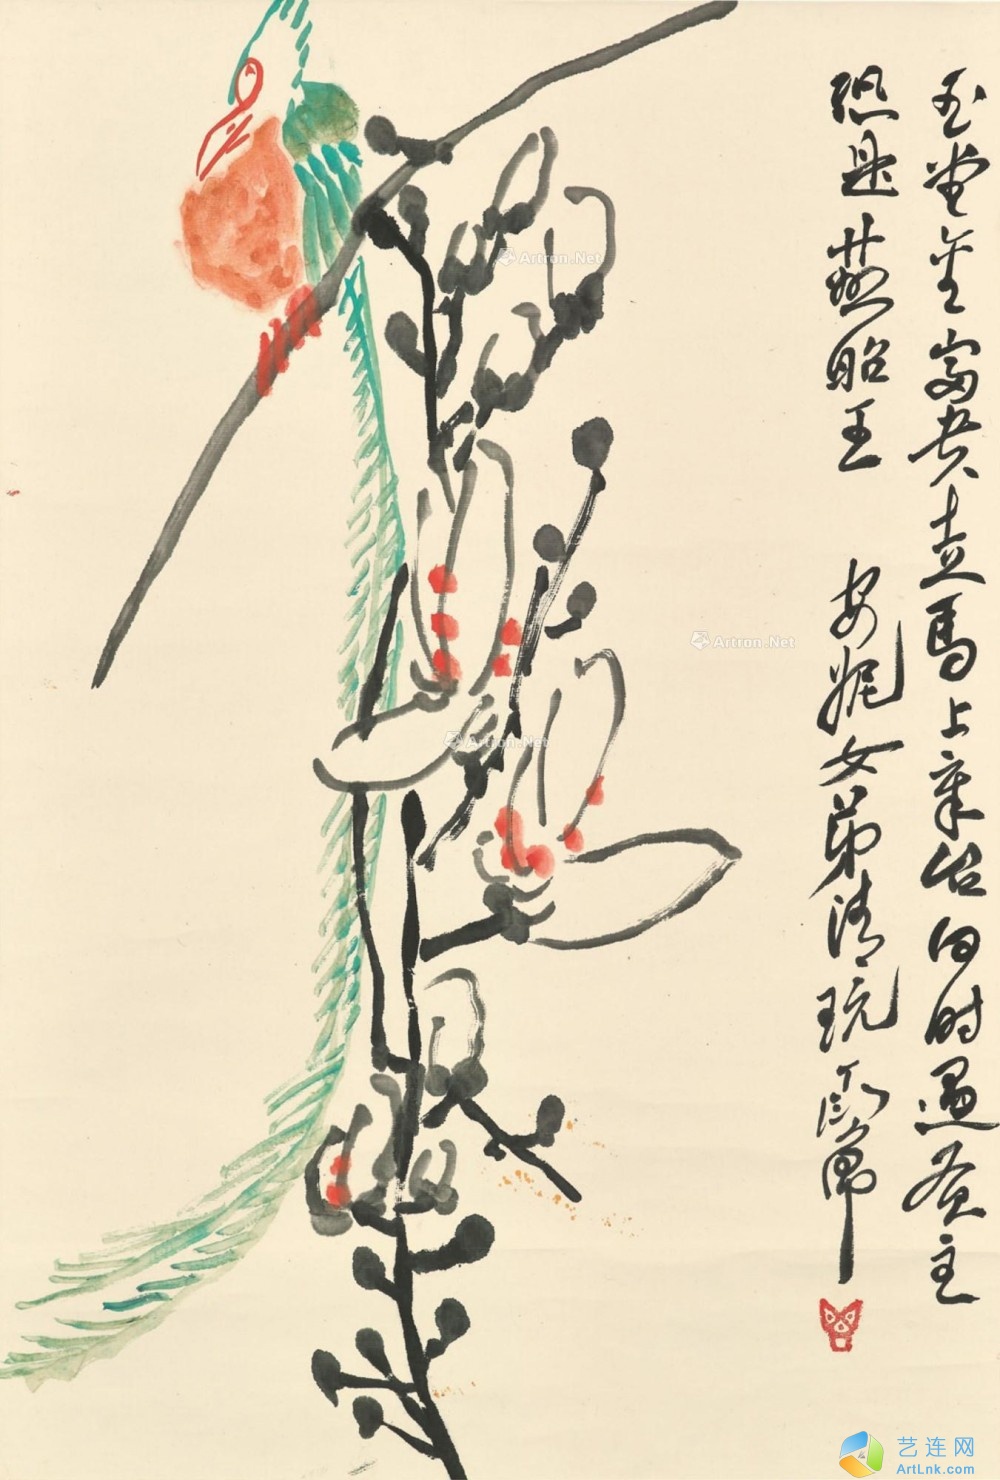 玉堂金富貴走馬上章台何时遇主
恐是燕昭王 安妮女弟清玩 丁衍庸
Artron.Net
Artron.Net
Artron.Net
艺连网
ArtLnk.com